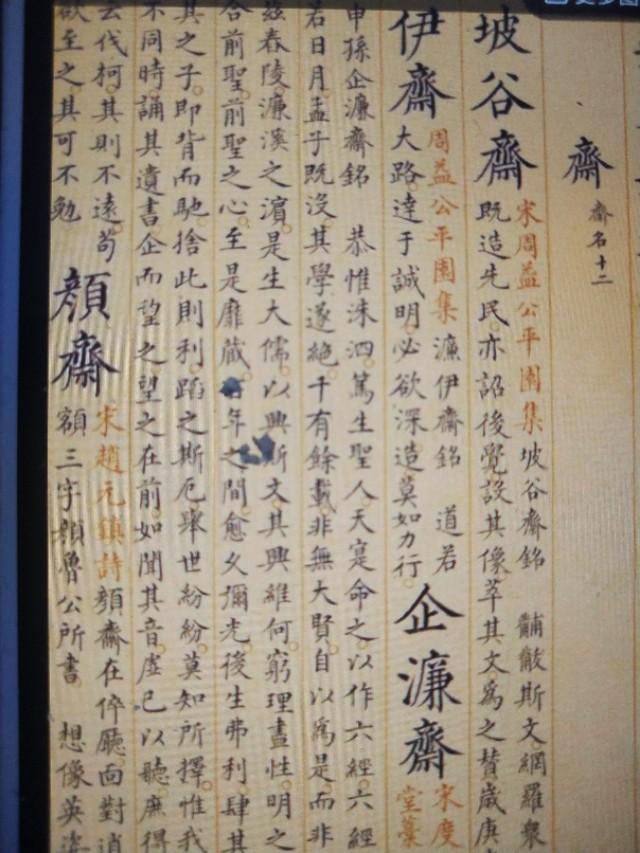 齋 齋名十二
坡谷齋 宋周益公平園集坡谷齋銘 黼黻斯文網羅衆
既造先民亦詔後覺設其像萃其文為之贊歲庚
伊齋 周益公平園集濂伊齋銘 道若
大路達于誠明必欲深造莫如力行
企濂齋 宋度
堂藁
申孫企濂齋銘 恭惟洙泗篤生聖人天寔命之以作六經六經
若日月孟子既沒其學遂絕千有餘載非無大賢自以為是而非
茲舂陵濂溪之濱是生大儒以興斯文其興維何窮理盡性明之
合前聖前聖之心至是靡蔵年之間愈久彌光後生弗利肆其
其之子即背而馳捨此則利蹈之斯厄舉世紛紛莫知所擇惟我
不同時誦其遺書企而望之望之在前如聞其音虛己以聽庶得
云伐柯其則不遠苟
欲至之其可不勉
顏齋 宋趙元鎮詩顏齋在倅廳面對
額三字顏魯公所書 想像英姿